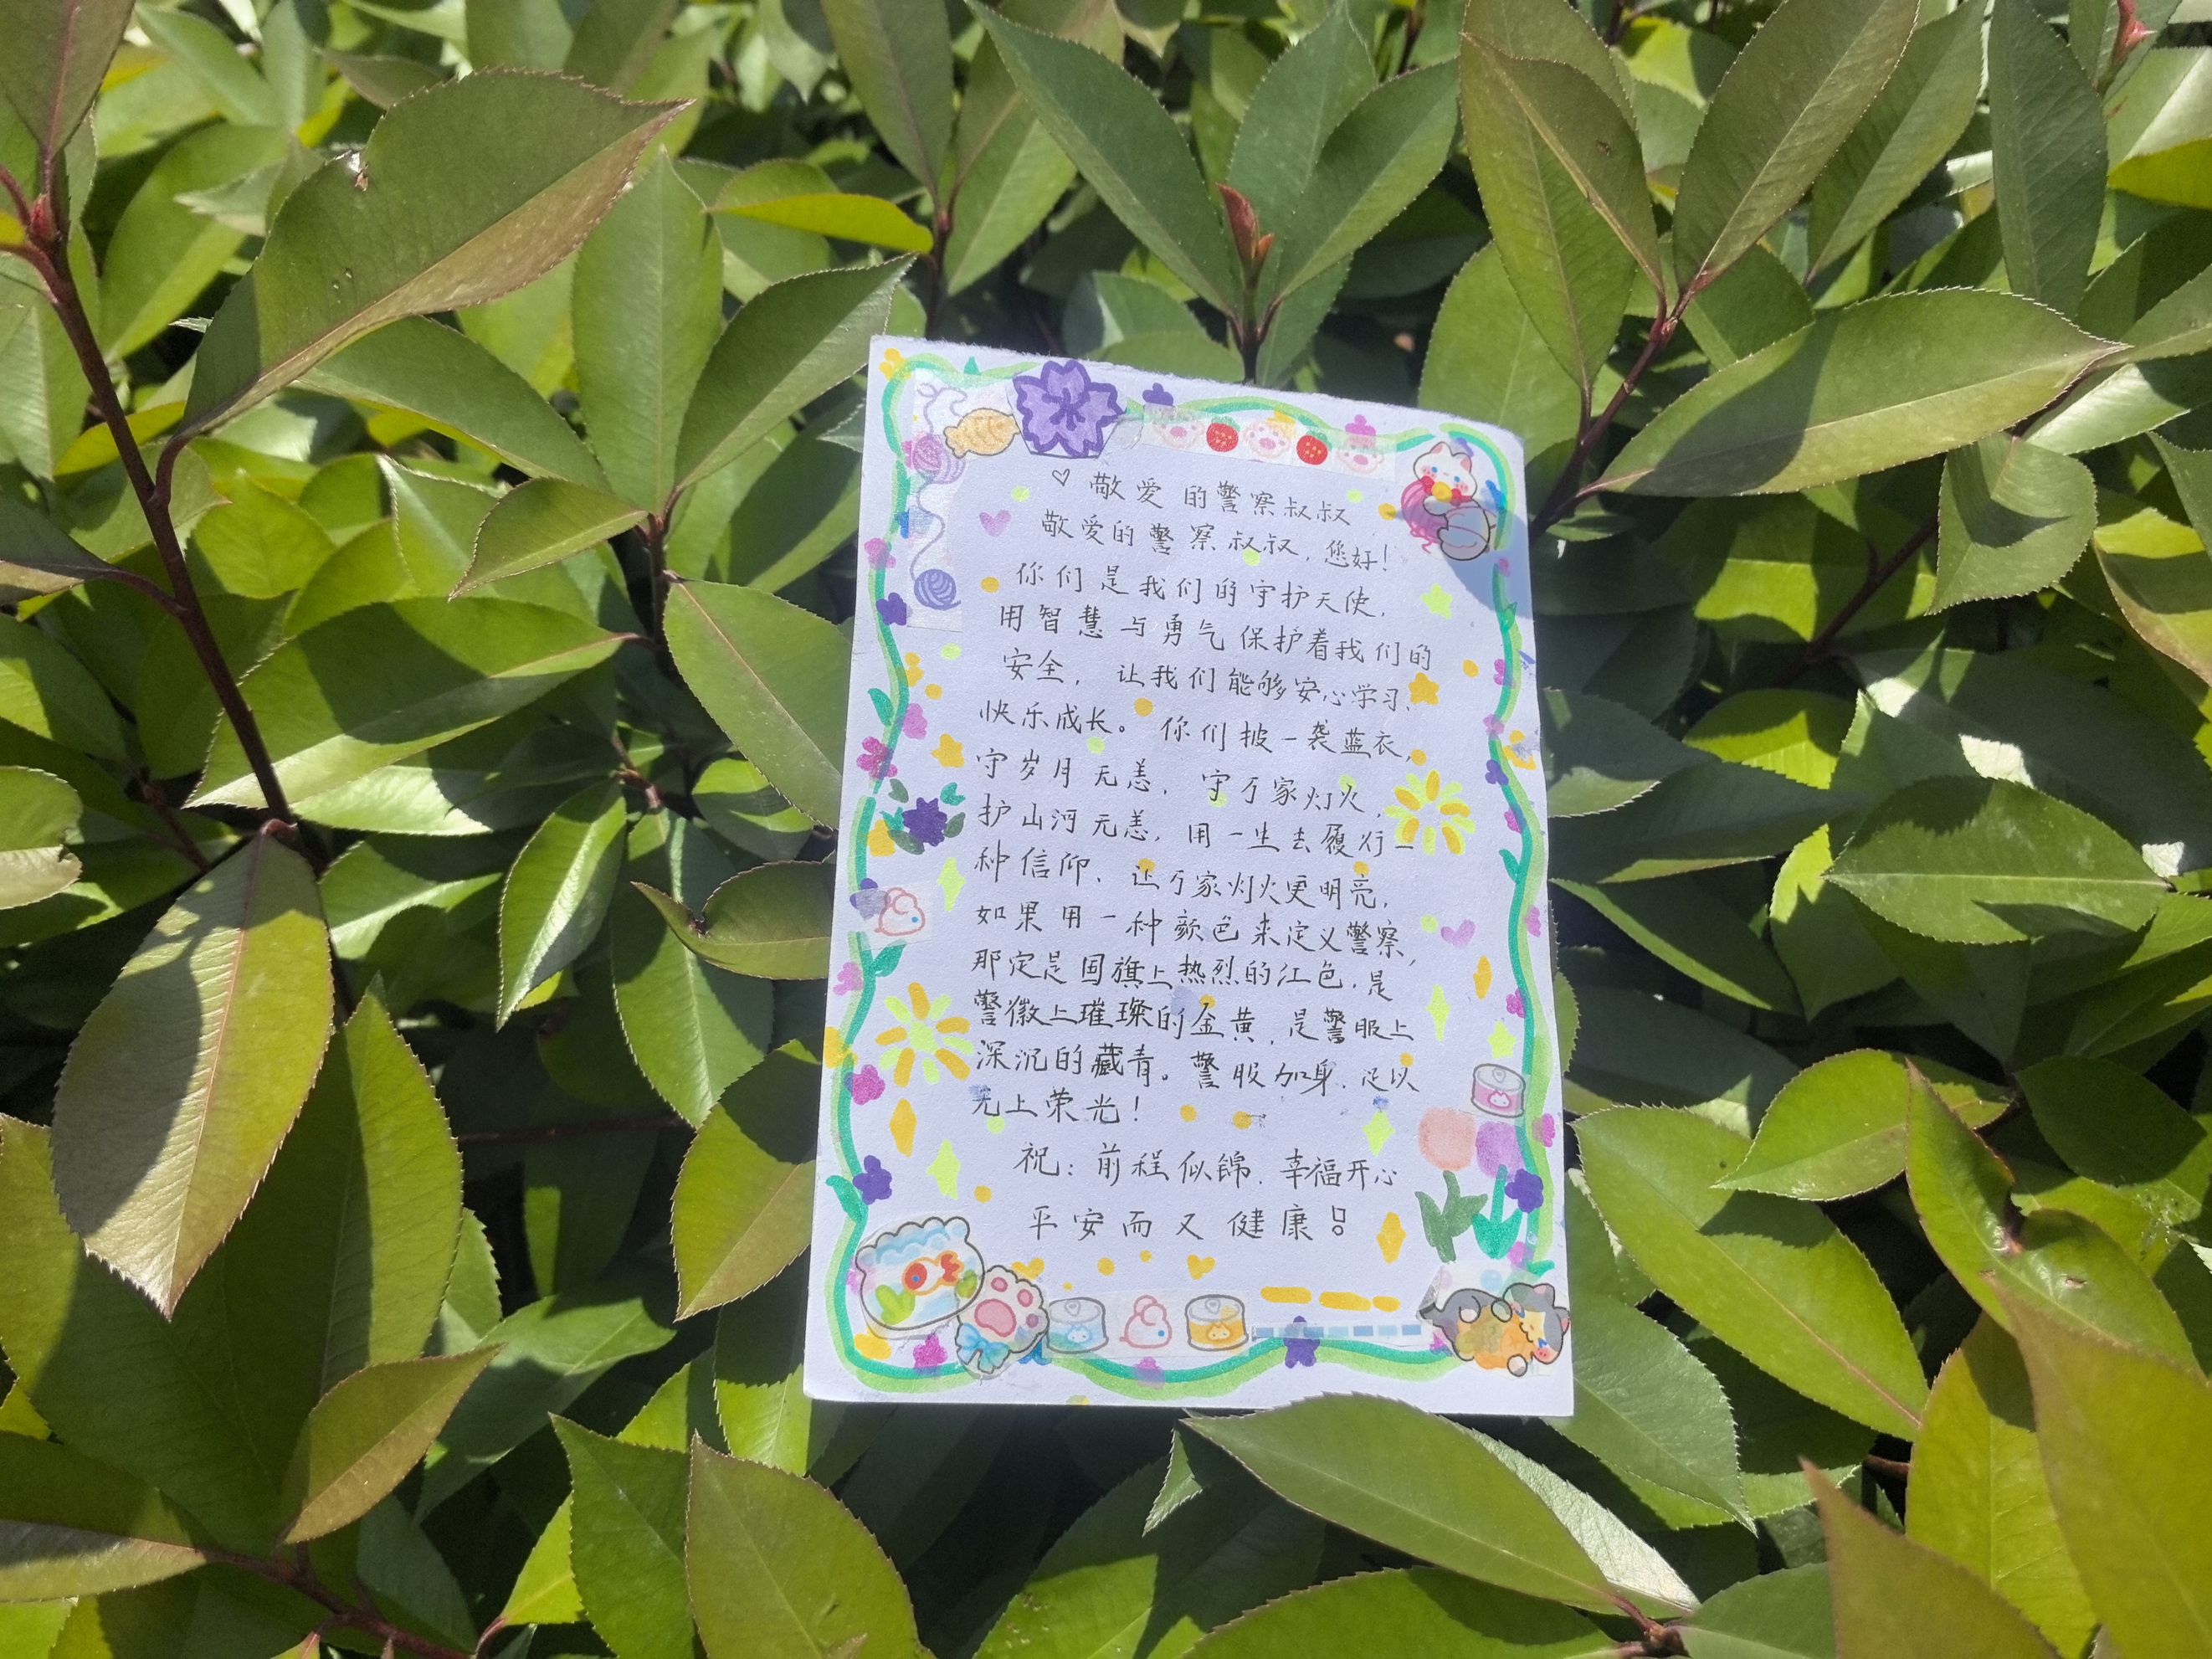 ♡ 敬爱的警察叔叔
敬爱的警察叔叔,您好!
你们是我们的守护天使,
用智慧与勇气保护着我们的
安全,让我们能够安心学习,
快乐成长。你们披一袭蓝衣,
守岁月无恙,守万家灯火,
护山河无恙,用一生去履行一
种信仰,让万家灯火更明亮,
如果用一种颜色来定义警察,
那定是国旗上热烈的红色,是
警徽上璀璨的金黄,是警服上
深沉的藏青。警服加身,足以
无上荣光!
祝:前程似锦,幸福开心
平安而又健康!